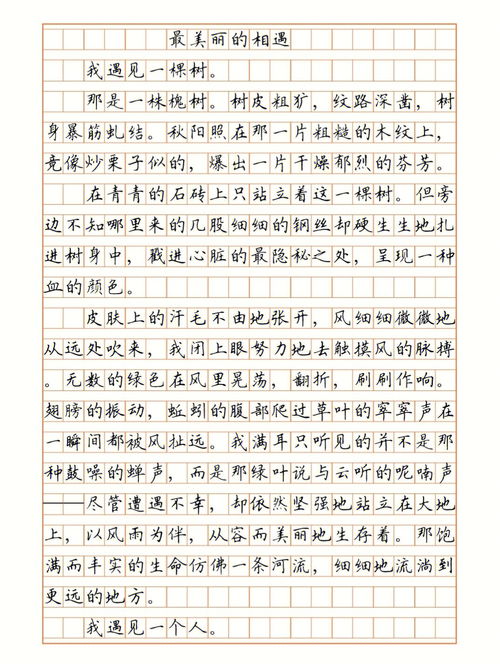 最美丽的相遇
我遇见一棵树。
那是一株槐树。树皮粗犷，纹路深凿，树
身暴筋虬结。秋阳照在那一片粗糙的木纹上，
竟像炒栗子似的，爆出一片干燥郁烈的芬芳。
在青青的石砖上只站立着这一棵树。但旁
边不知哪里来的几股细细的钢丝却硬生生地扎
进树身中，戳进心脏的最隐秘之处，呈现一种
血的颜色。
皮肤上的汗毛不由地张开，风细细微微地
从远处吹来，我闭上眼努力地去触摸风的脉搏
。无数的绿色在风里晃荡，翻折，刷刷作响。
翅膀的振动，蚯蚓的腹部爬过草叶的窣窣声在
一瞬间都被风扯远。我满耳只听见的并不是那
种鼓噪的蝉声，而是那绿叶说与云听的呢喃声
——尽管遭遇不幸，却依然坚强地站立在大地
上，以风雨为伴，从容而美丽地生存着。那饱
满而丰实的生命仿佛一条河流，细细地流淌到
更远的地方。
我遇见一个人。